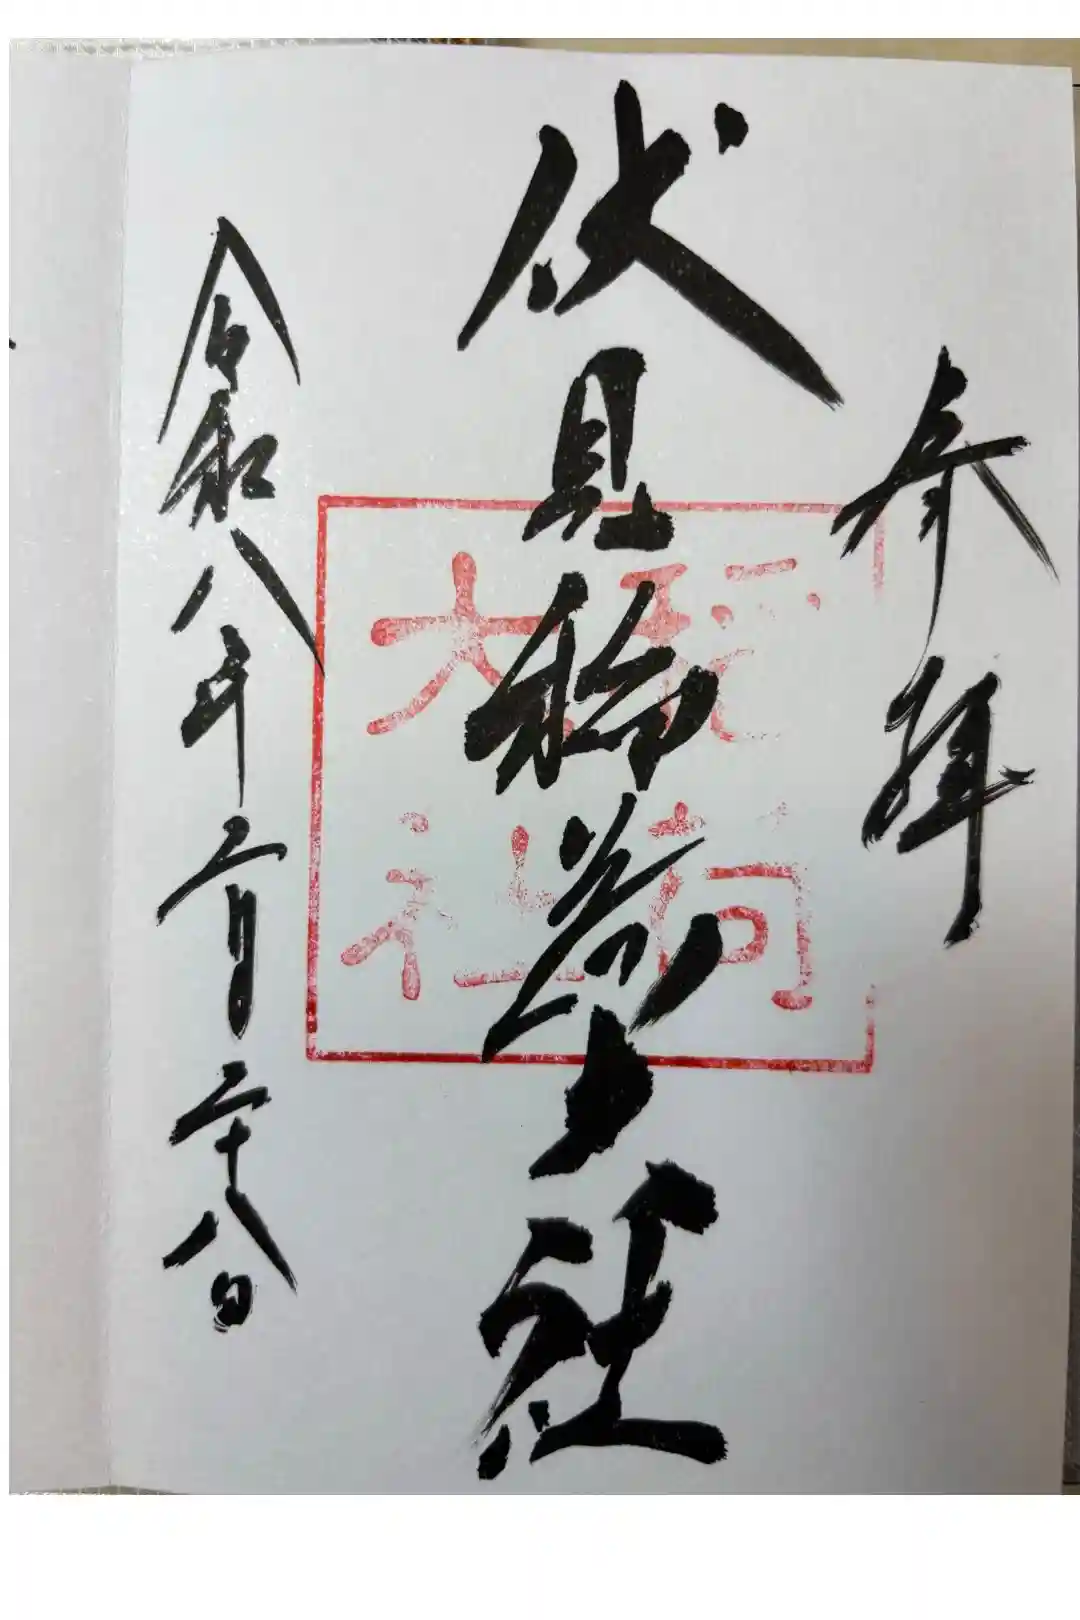 奉拝
伏見稲荷大社
稲荷
大社
令和八年二月二十八日